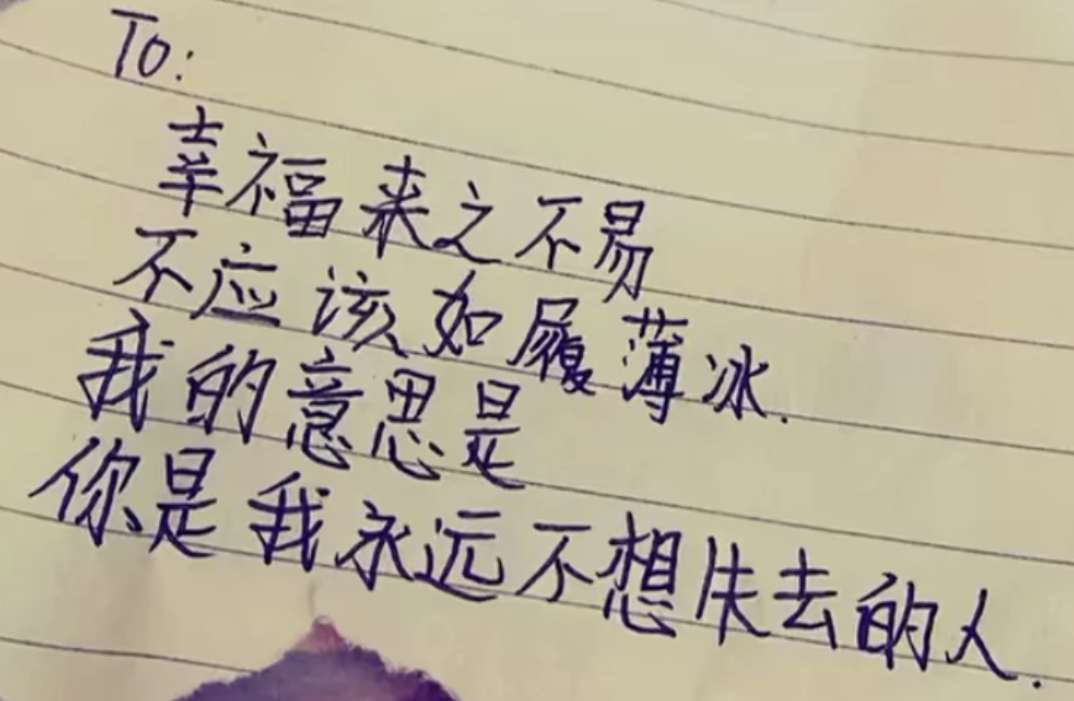 To:
幸福来之不易
不应该如履薄冰.
我的意思是
你是我永远不想失去的人.